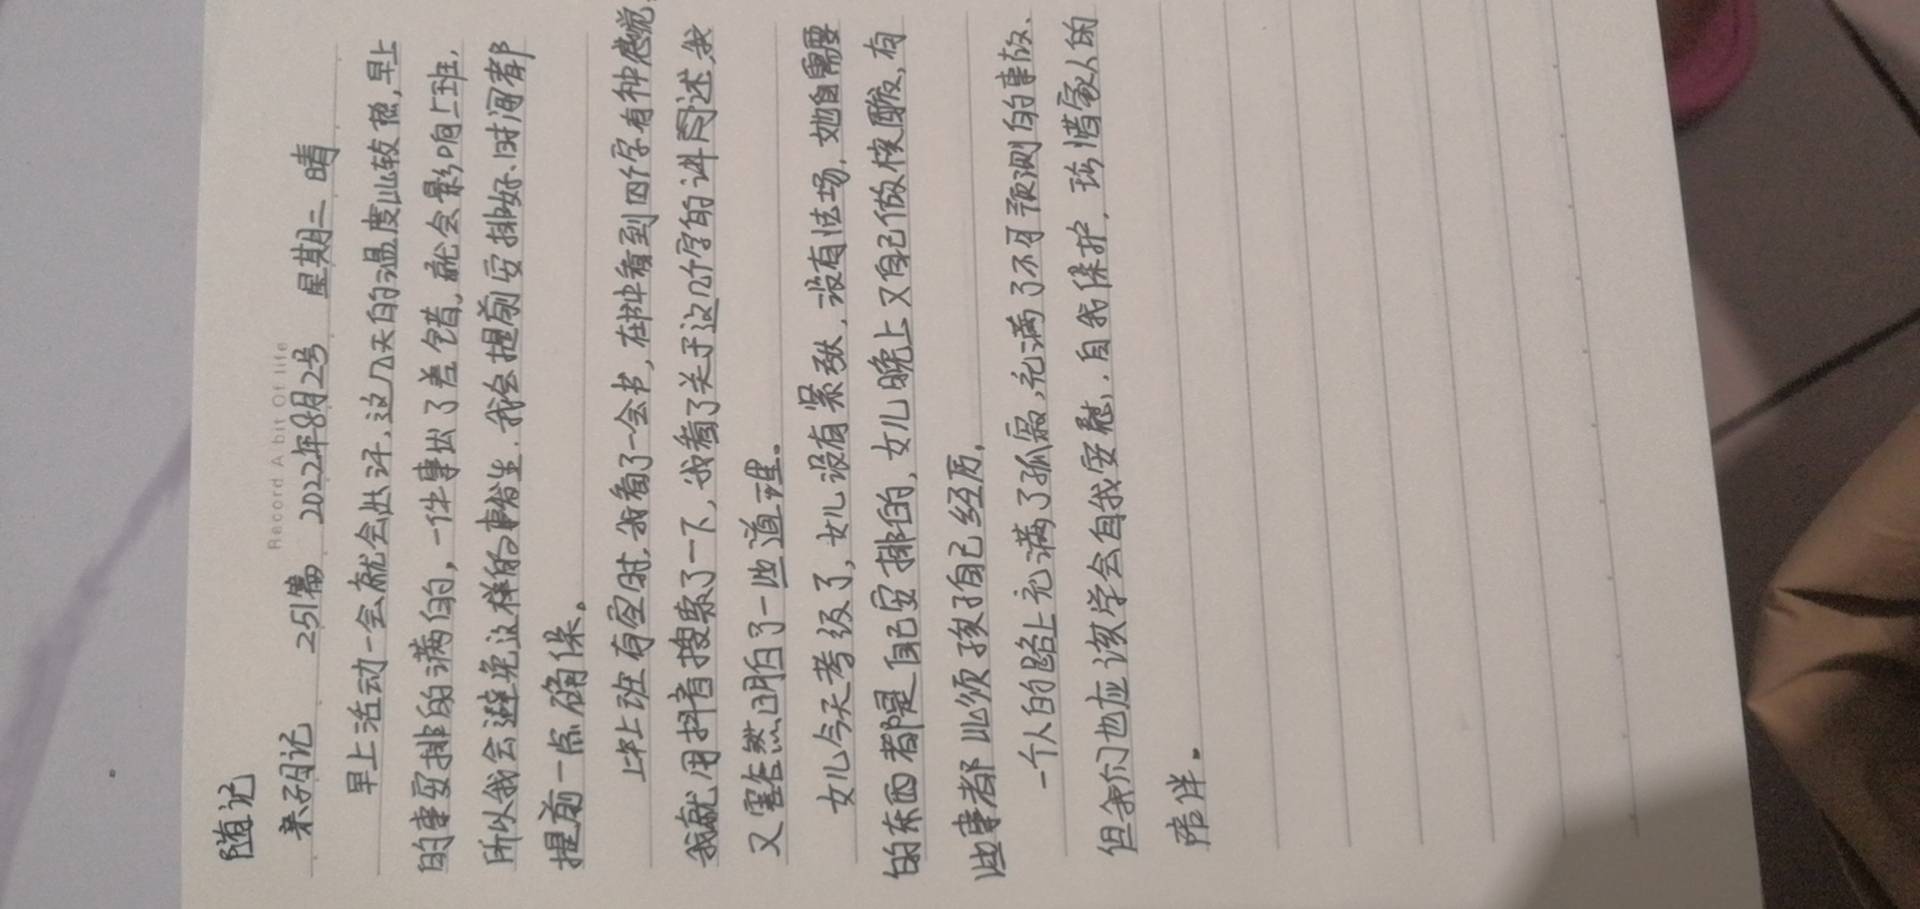 随记
Record A bit Of life
亲子日记 251篇 2022年8月2号 星期二 晴
早上活动一会就会出汗,这几天的温度比较热,早上
的事安排的满的,一件事出了差错,就会影响上班,
所以我会避免这样的事发生,我会提前安排好、时间都
提前一点确保。
上早班有空时,我看了一会书,在书中看到四个字有种感觉,
我就用抖音搜索了一下,我看了关于这几个字的讲述,我
又豁然明白了一些道理。
女儿今天考级了,女儿没有紧张,没有怯场,她自需要
的东西都是自己安排的,女儿晚上又自己做核酸,有
些事都必须孩子自己经历,
一个人的路上充满了孤寂,充满了不可预测的事故、
但我们也应该学会自我安慰,自我保护,珍惜家人的
陪伴。